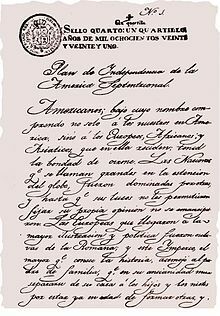 Nº 1
Un quartillo
SELLO QUARTO: UN QUARTILLO
AÑOS DE MIL OCHOCIENTOS VEINTE
Y VEINTE Y UNO.
Plan de Independencia de la
America Septentrional.
Americanos; bajo cuyo nombre com-
prendo no solo á los nacidos en Ame-
rica, sino á los Europeos, Africanos y
Asiaticos, que en ella reciden: tened
la bondad de oirme. Las Naciones
q.e se llaman grandes en la estencion
del globo, fueron dominadas por otras
y hasta q.e sus luces no les permitieron
fijar su propia opinion no se emancipa-
ron. Las Europeas que llegaron á la
mayor ilustracion y politica fueron escla-
vas de la Romana, y este Imperio el
mayor q.e conoce la historia, asemejó al pa-
dre de familias, q.e en su ancianidad mira
separarse de su casa á los hijos y los nietos
por estar ya en edad de formar otras y